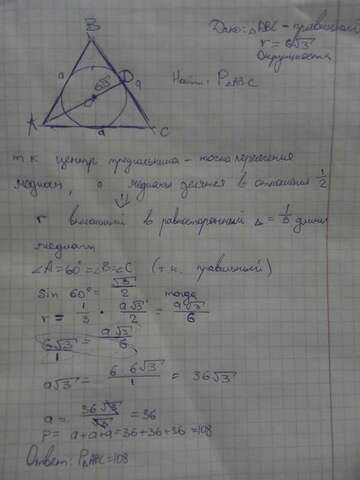 B
Дано: △ABC - правильный
r = 6√3
Окружность
Найти: P△ABC
a
a
6√3
D
O
A
a
C
т к центр треугольника - точка пересечения
медиан, а медианы делятся в отношении 1/2
⇓
r вписанный в равносторонний △ = 1/3 длины
медианы
∠A=60°=∠B=∠C (т.к. правильный)
sin 60° = √3/2 тогда
r = 1/3 · a√3/2 = a√3/6
6√3/1 = a√3/6
a√3 = 6·6√3/1 = 36√3
a = 36√3/√3 = 36
P = a+a+a=36+36+36=108
Ответ: P△ABC=108